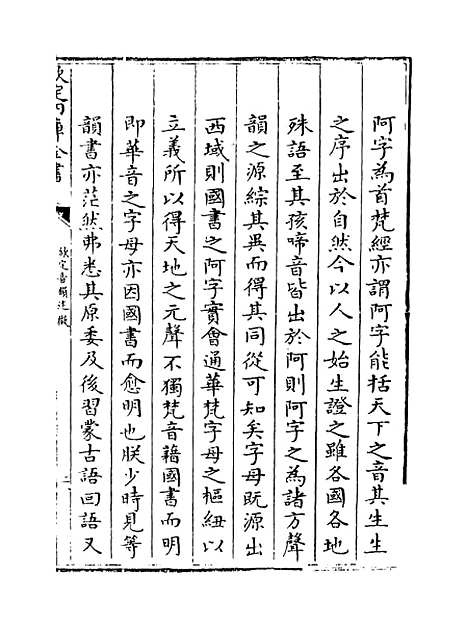 阿字為首梵經亦謂阿字能括天下之音其生生
之序出於自然今以人之始生證之雖各國各地
殊語至其孩啼音皆出於阿則阿字之為諸方聲
韻之源綜其異而得其同從可知矣字母既源出
西域則國書之阿字實會通華梵字母之樞紐以
立義所以得天地之元聲不獨梵音藉國書而明
即華音之字母亦因國書而愈明也朕少時見等
韻書亦茫然弗悉其原委及後習蒙古語回語又
欽定四庫全書
欽定音韻述微